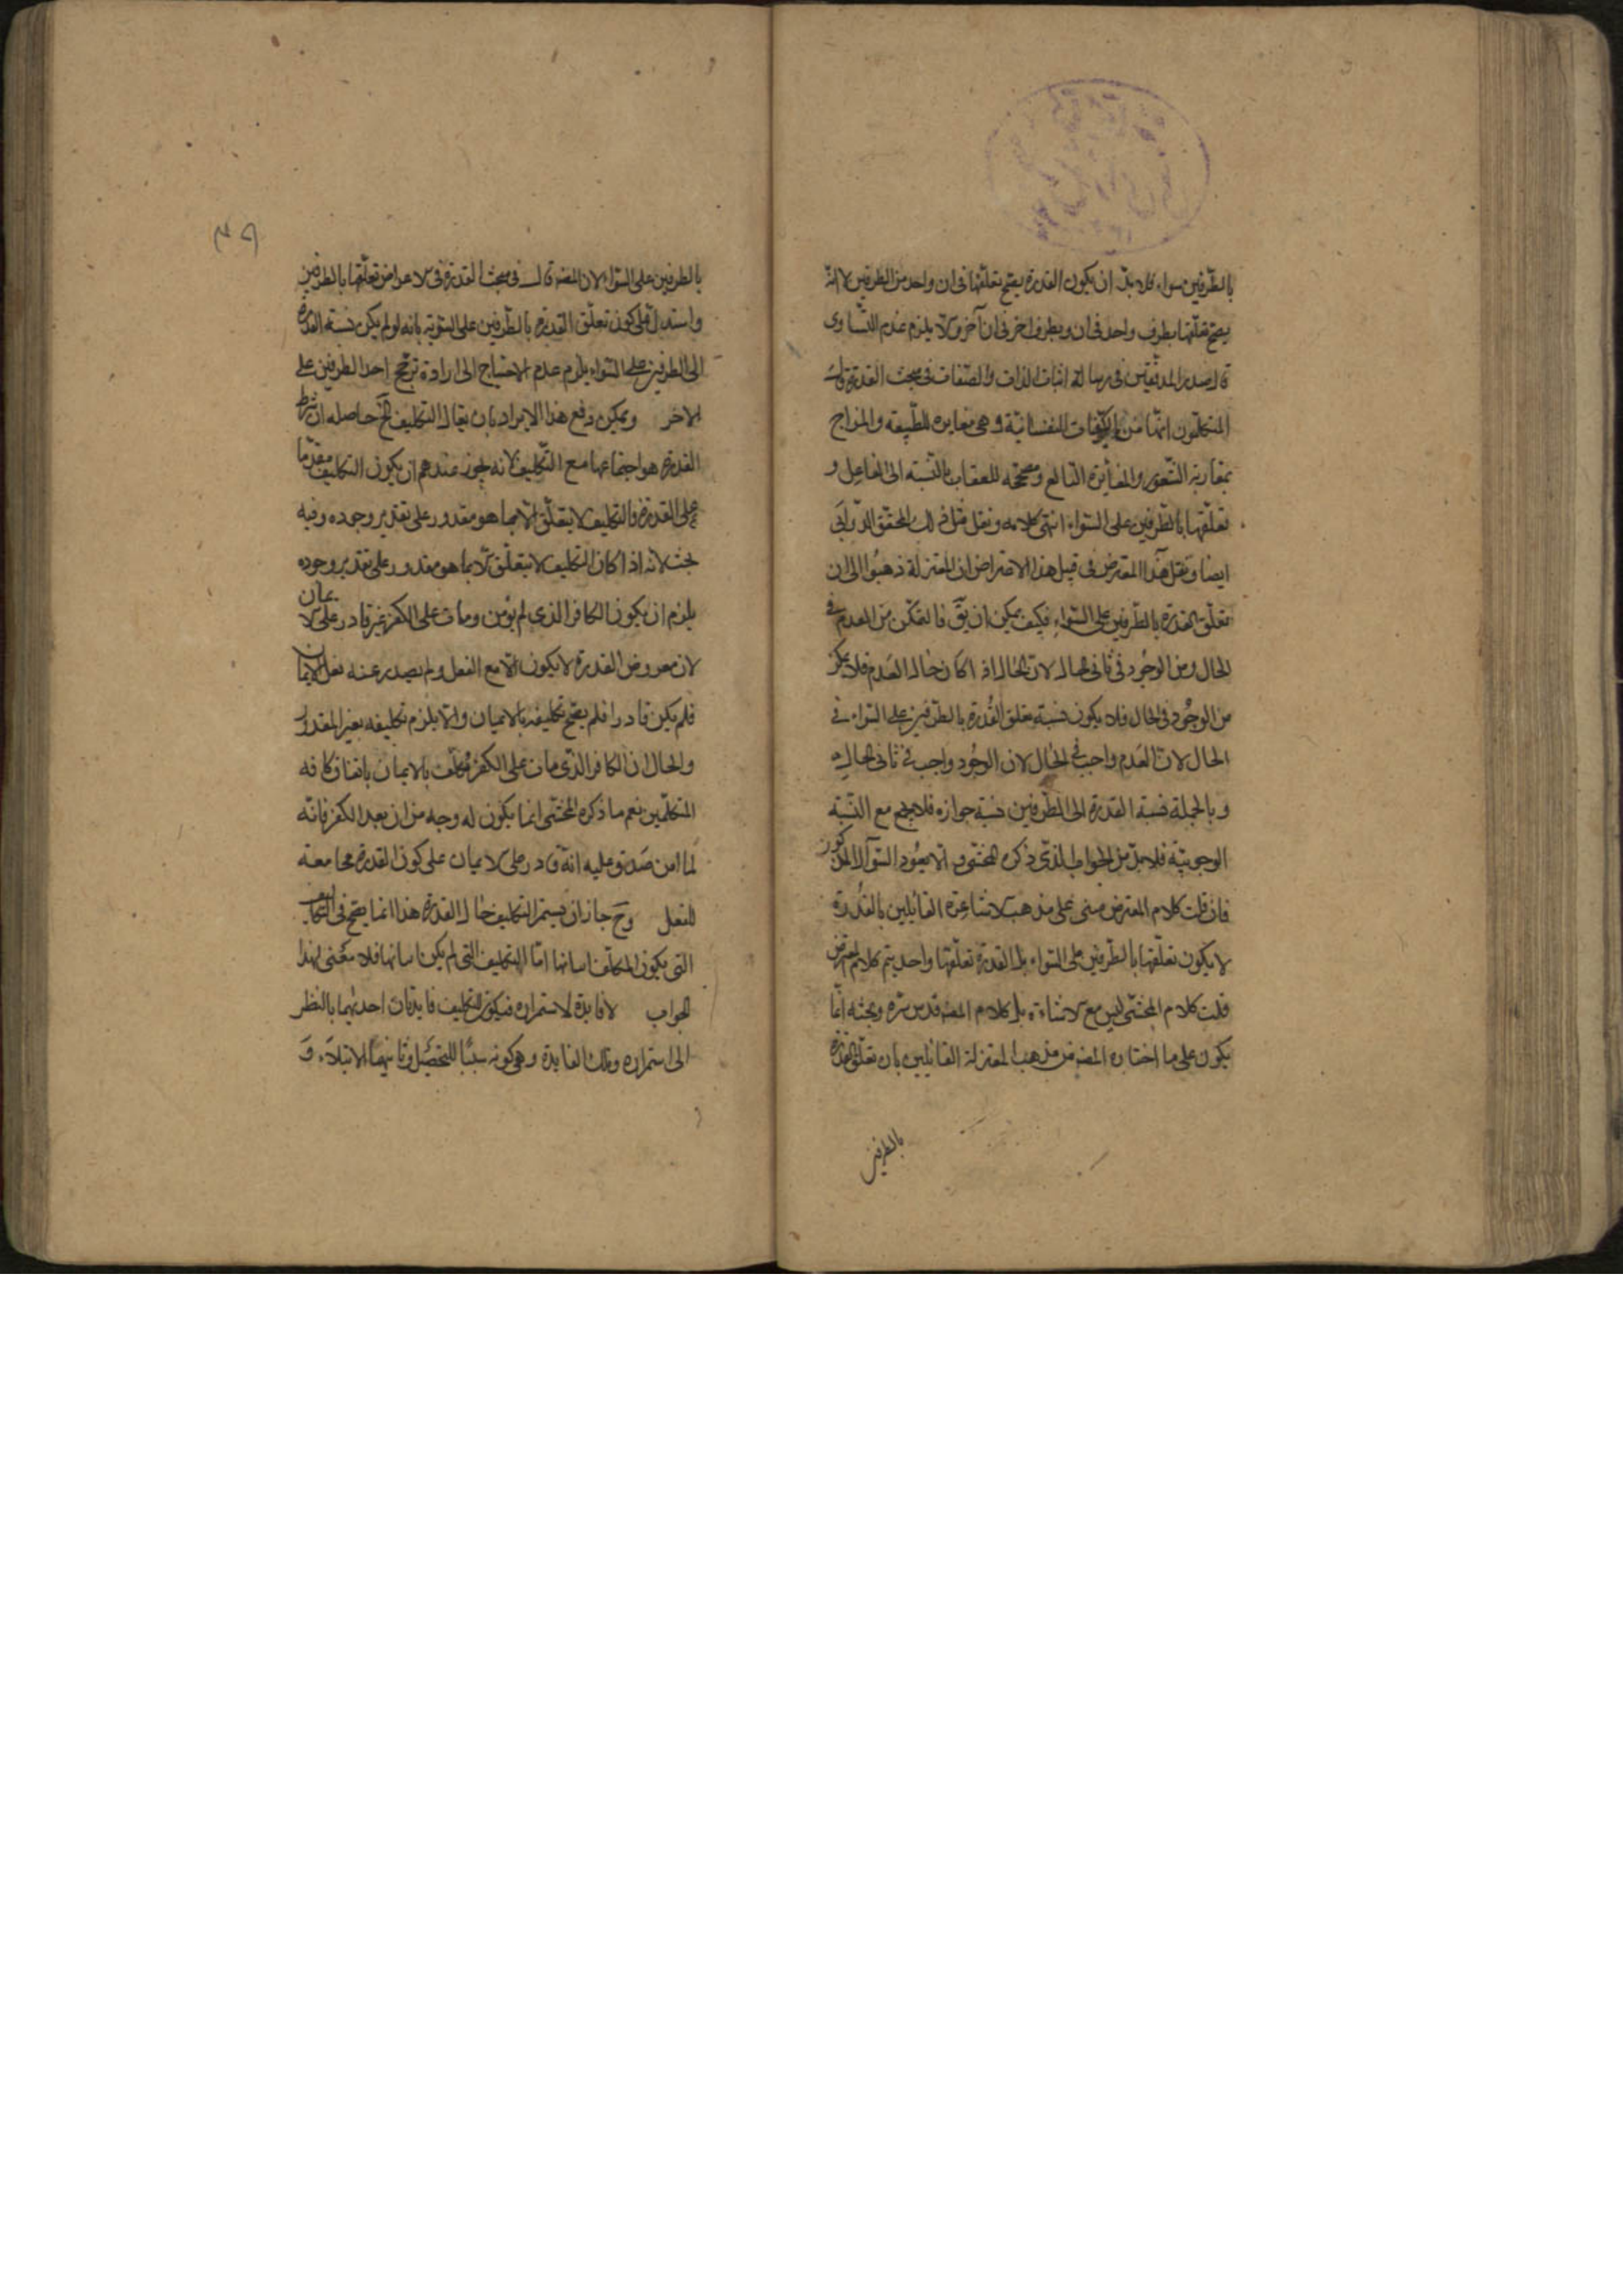 بالطّرفين سواء فلا بدّ ان يكون القدرة يصحّ تعلّقها فى ان واحد من الطرفين لا انّه
يصحّ تعلّقها بطرف واحد فى ان وبطرف اخر فى ان آخر والّا يلزم عدم التّساوى
قال صدر المدققين فى رسالة اثبات الذات والصّفات فى مبحث القدرة قالت
المتكلّمون انّها من الكيفيات النفسانيّة وهى مغايرة للطّبيعة والمزاج
بمقارنة الشّعور والمغايرة التابع ومصحّحة للعقاب بالنّسبة الى الفاعل و
تعلّقها بالطّرفين على السّواء انتهى كلامه ونقل مثل ذلك المحقّق الدّوانى
ايضا ونقل هذا المعترض فى قبل هذا الاعتراض ان المعتزلة ذهبوا الى ان
تعلّق القدرة بالطّرفين على السّواء فكيف يمكن ان يقّ فالتمكّن من العدم فى
الحال ومن الوجود فى ثانى الحال لانّ الحال اذا كان حال العدم فلا يمكن
من الوجود فى الحال فلا يكون نسبة تعلق القدرة بالطرفين على السّواء فى
الحال لانّ العدم واجب فى الحال لان الوجود واجب فى ثانى الحال
وبالجملة نسبة القدرة الى الطّرفين نسبة جوازه فلا يجمع مع النّسبة
الوجوبيّة فلا بدّ من الجواب الذى ذكره المحشّى والا يعود السّؤال المذكور
فان قلت كلام المعترض مبنى على مذهب الاشاعرة القائلين بالقدرة
لا يكون تعلّقها بالطّرفين على السّواء بل القدرة تعلّقها واحد يتم كلام المعترض
قلت كلام المحشّى ليس مع الاشاعرة بل كلام المصنه قدس سّره وبحثه انّما
يكون على ما اختاره المصنه من مذهب المعتزلة القائلين بان تعلّق القدرة
بالطرفين
٣٩
بالطرفين على السّواء لان المصنه قال فى مبحث القدرة فى الاعراض تعلّقها بالطرفين
واستدلّ على كون تعلّق القدرة بالطّرفين على السّويّة بانه لو لم يكن نسبة القدرة
الى الطرفين على السّواء يلزم عدم الاحتياج الى ارادة ترجّح احد الطرفين على
الاخر ويمكن دفع هذا الايراد بان يقال التكليف الخ حاصله ان شرط
القدرة هو اجتماعها مع التّكليف لانه يجوز عندهم ان يكون التكليف مقدّما
على القدرة والتكليف لا يتعلّق الّا بما هو مقدور على تقدير وجوده وفيه
بحث لانه اذا كان التكليف لا يتعلّق الّا بما هو مقدور على تقدير وجوده
يلزم ان يكون الكافر الذى لم يؤمن ومات على الكفر غير قادر على الايمان
لان معروض القدرة لا يكون الّا مع الفعل ولم يصدر عنه فعل الايمان
فلم يكن قادرا فلم يصحّ تكليفه بالايمان والّا يلزم تكليفه بغير المقدور
والحال ان الكافر الذى مات على الكفر مكلّف بالايمان باتفاق كافه
المتكلّمين نعم ما ذكره المحشّى انما يكون له وجه من ان بعد الكفر فانّه
لما امن صدق عليه انّه قادر على الايمان على كون القدرة مجامعة
للفعل وحَ جاز ان يستمر التكليف حال القدرة هذا انما يصحّ فى التكاليف
التى يكون المكلّف اتيانها امّا التكليف التى لم يكن اتيانها فلا معنى لهذا
الجواب لا فايدة لاستمراره فيكون للتكليف فايدتان احديهما بالنظر
الى استمراره وتلك الفايدة وهى كونه سببًا للتحصيل وثانيهما الابتلاء وَ